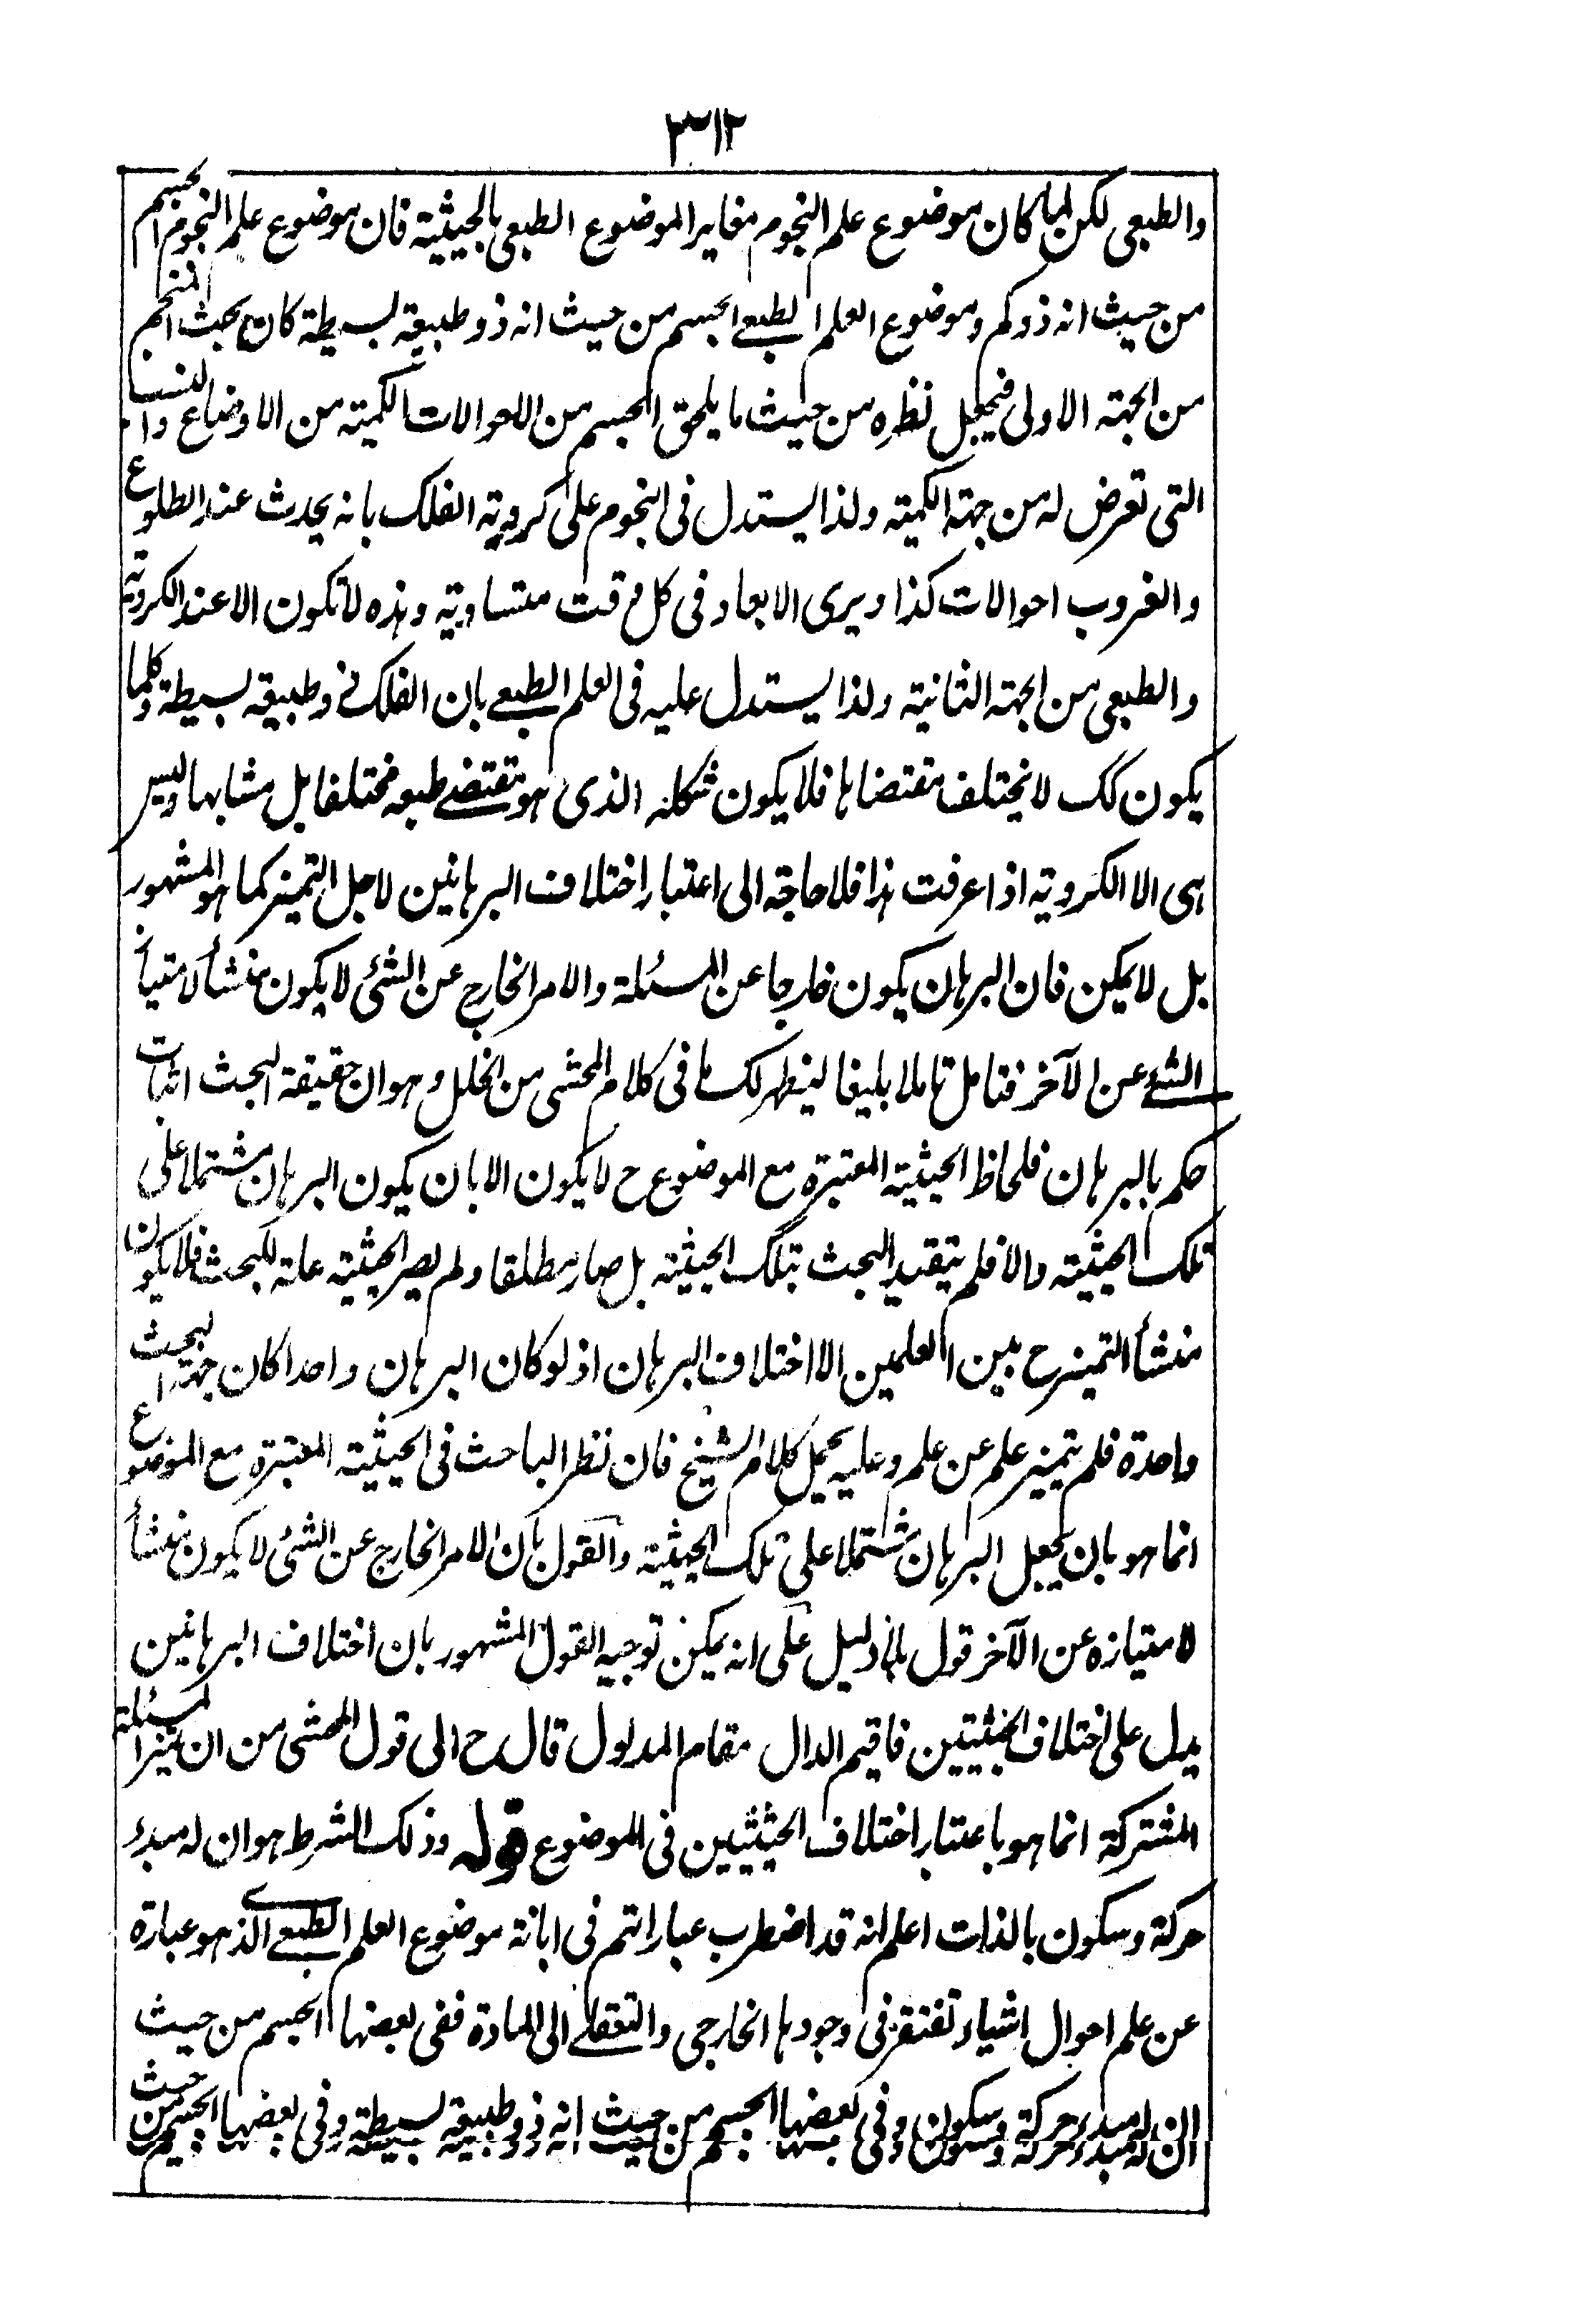 ٣١٢
والطبعى لكن لما كان موضوع علم النجوم مغاير الموضوع الطبعى بالحيثية فان موضوع علم النجوم الجسم
من حيث انه ذو كم وموضوع العلم الطبعى الجسم من حيث انه ذو طبيعة بسيطة كان بحث المنجم
من الجهته الاولى فيجعل نظره من حيث ما يلحق الجسم من الاحوالات الكمية من الاوضاع والنسب
التى تعرض له من جهته الكميته ولذا يستدل فى النجوم على كروية الفلك بانه يحدث عند الطلوع
والغروب احوالات كذا ويرى الابعاد فى كل وقت متساوية وهذه لا تكون الا عند الكروية
والطبعى من الجهته الثانية ولذا يستدل عليه فى العلم الطبعى بان الفلك ذو طبيعة بسيطة وكلما
يكون كك لا يختلف مقتضاها فلا يكون شكله الذى هو مقتضى طبعه مختلفا بل مشابها وليس
هى الا الكروية اذا عرفت هذا فلا حاجة الى اعتبار اختلاف البرهانين لاجل التميز كما هو المشهور
بل لا يمكن فان البرهان يكون خارجا عن المسئلة والامر الخارج عن الشئ لا يكون منشأ لامتياز
الشئ عن الآخر فتامل تاملا بليغا ليظهر لك ما فى كلام المحشى من الخلل وهو ان حقيقة البحث اثبات
حكم بالبرهان فلحاظ الحيثية المعتبرة مع الموضوع ح لا يكون الا بان يكون البرهان مشتملا على
تلك الحيثية والا فلم يتقيد البحث بتلك الحيثية بل صار مطلقا ولم يصر الحيثية علة للبحث فلا يكون
منشأ التميز ح بين العلمين الا اختلاف البرهان اذ لو كان البرهان واحدا كان جهة البحث
واحدة فلم يتميز علم عن علم وعليه يحمل كلام الشيخ فان نظر الباحث فى الحيثية المعتبرة مع الموضوع
انما هو بان يجعل البرهان مشتملا على تلك الحيثية والقول بان الامر الخارج عن الشئ لا يكون منشأ
لامتيازه عن الآخر قول بلا دليل على انه يمكن توجيه القول المشهور بان اختلاف البرهانين
يدل على اختلاف الحيثيتين فاقيم الدال مقام المدلول قال ح الى قول المحشى من ان تميز المسئلة
المشتركة انما هو باعتبار اختلاف الحيثيتين فى الموضوع قوله وذلك الشرط هو ان له مبدء
حركة وسكون بالذات اعلم انه قد اضطرب عباراتهم فى ابانة موضوع العلم الطبعى الذى هو عبارة
عن علم احوال اشياء تفتقر فى وجودها الخارجى والتعقلى الى المادة ففى بعضها الجسم من حيث
ان له مبدء حركة وسكون وفى بعضها الجسم من حيث انه ذو طبيعة بسيطة وفى بعضها الجسم من حيث